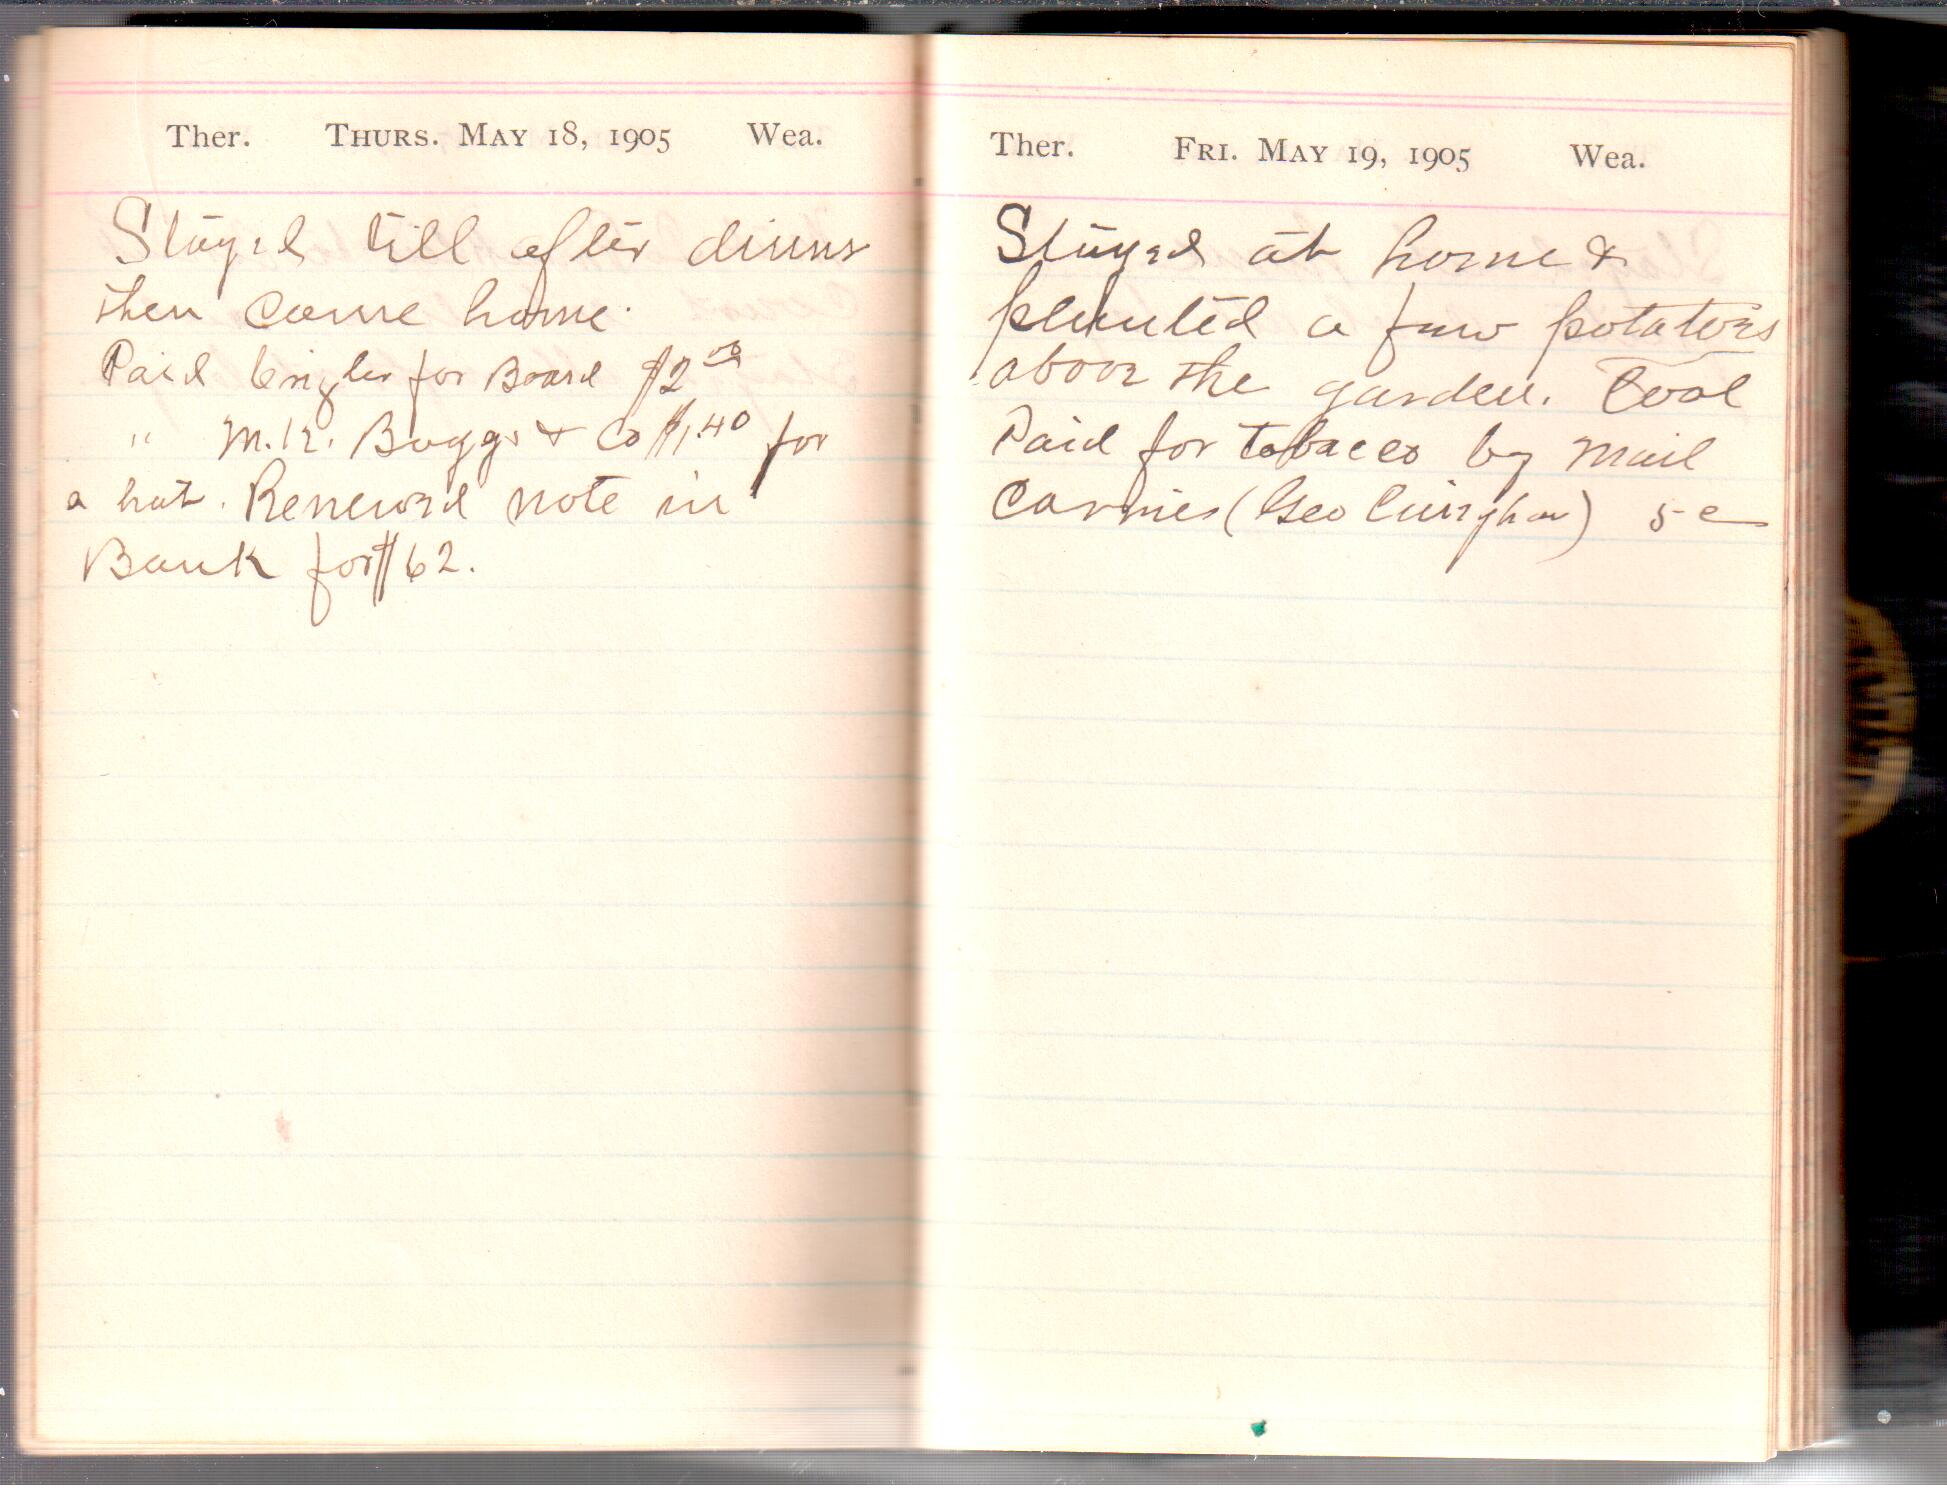 Ther. THURS. MAY 18, 1905 Wea.
Stayed till after dinner
then come home.
Paid for Board $2.00
" M.K. Boggs & Co $1.40 for
a hat. Renewed note in
Bank for $62.
Ther. FRI. MAY 19, 1905 Wea.
Stayed at home &
planted a few potatoes
above the garden. Cool
Paid for tobacco by Mail
Carrier (Geo ) 5c